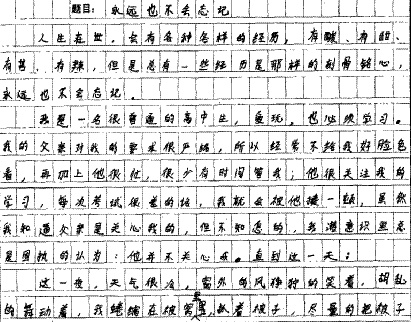 题目：永远也不会忘记
人生在世，会有各种各样的经历，有酸、有甜、
有苦、有辣，但是总有一些经历是那样的刻骨铭心，
永远也不会忘记。
我是一名很普通的高中生，爱玩，也必须学习。
我的父亲对我的要求很严格，所以经常不给我好脸色
看，再加上他很忙，很少有时间管我；他很关注我的
学习，每次考试很差的话，我就会被他揍一顿，虽然
我知道父亲是关心我的，但不知怎的，我潜意识里总
是固执的认为：他并不关心我。直到这一天：
这一夜，天气很冷，窗外的风狰狞的笑着，胡乱
的舞动着，我蜷缩在被窝里，抓着被子，尽量的把被子